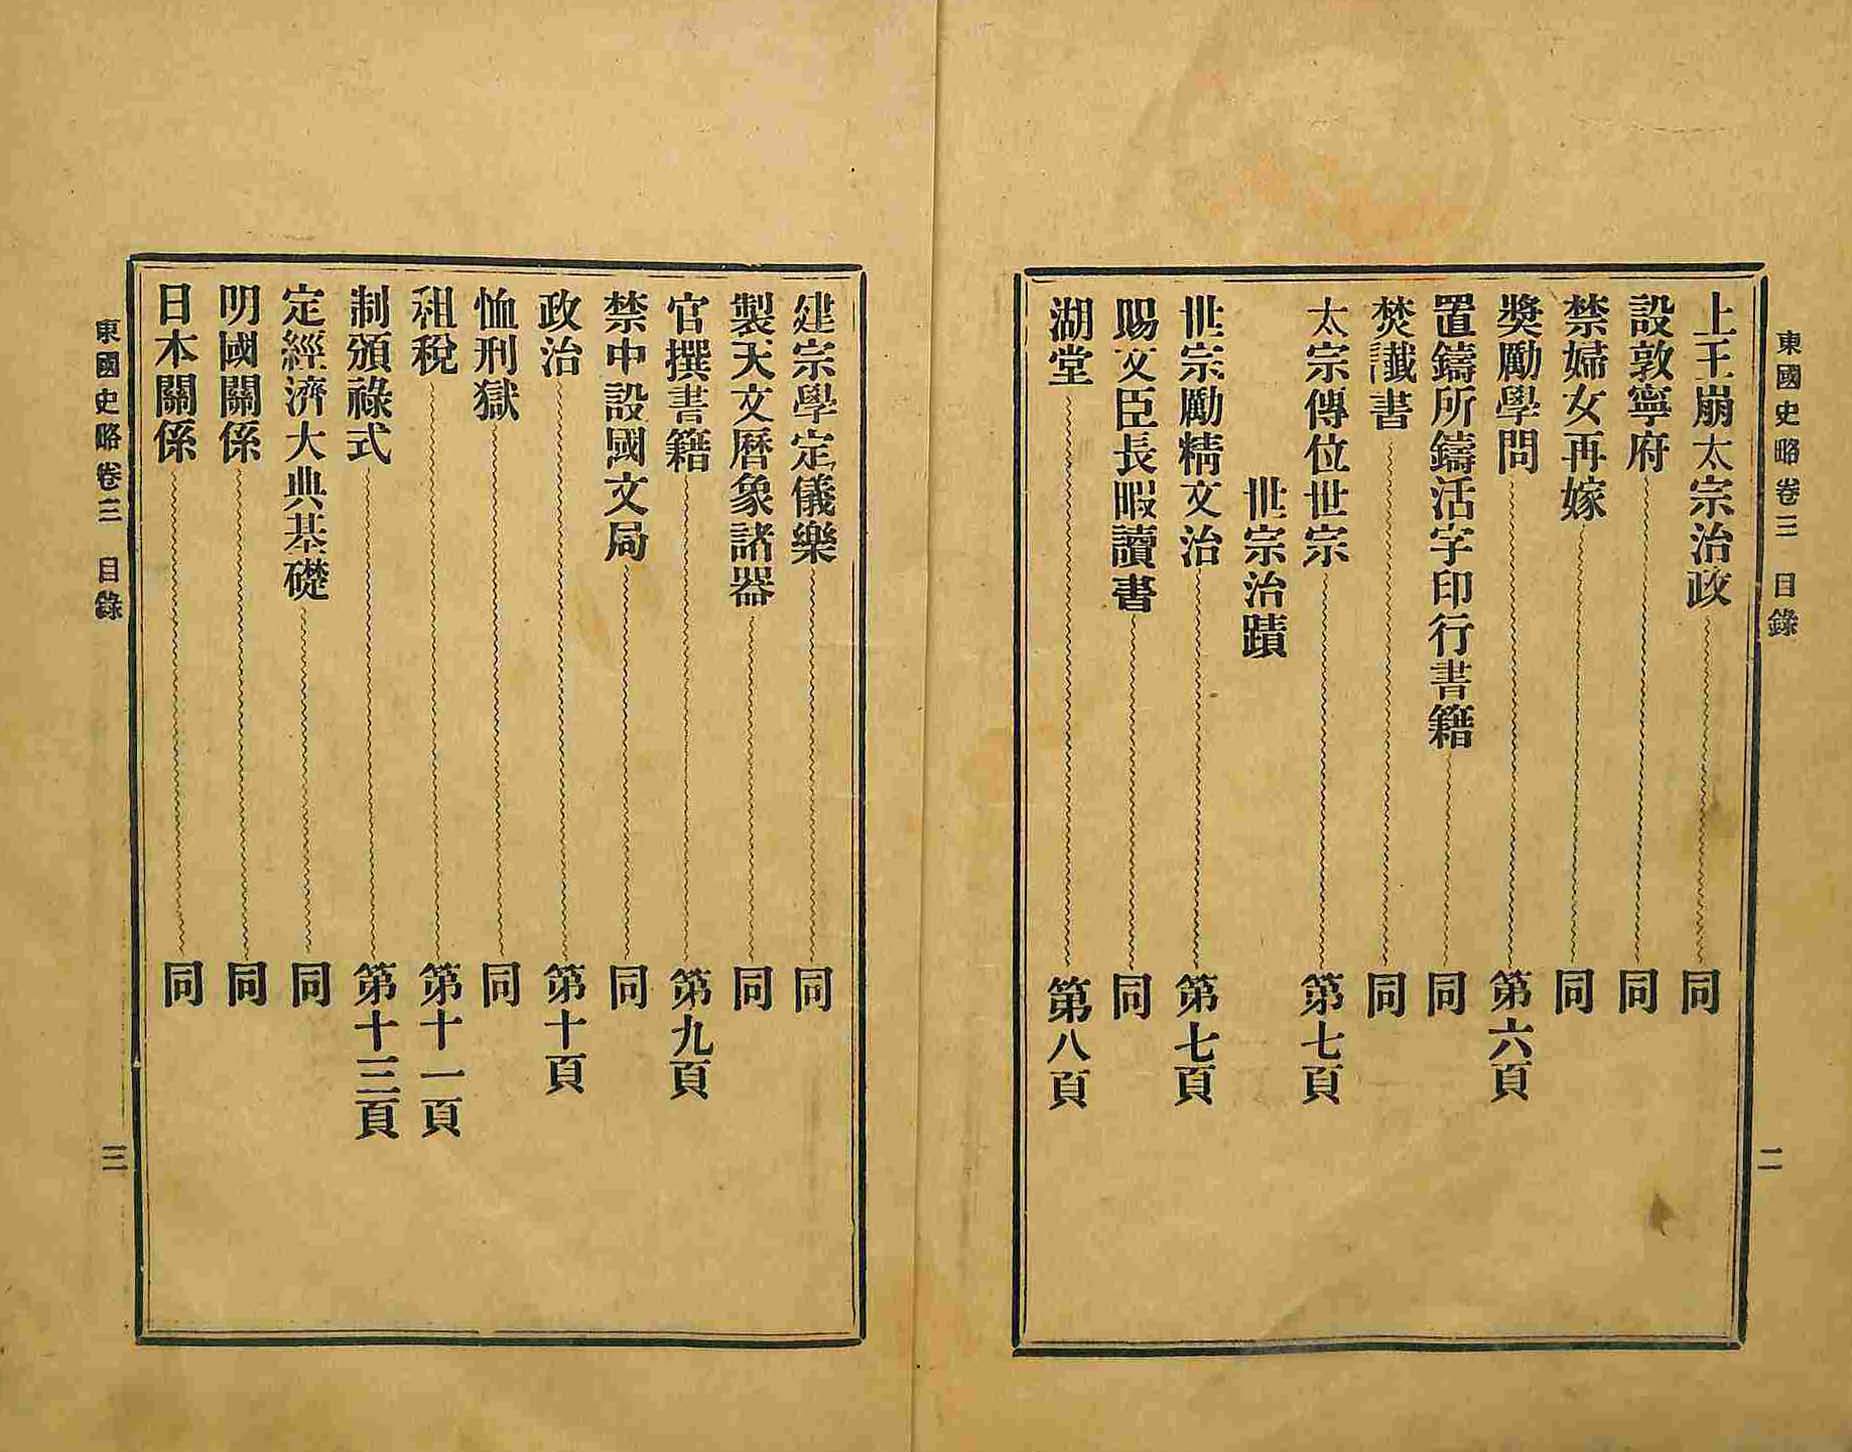 東國史略卷三 目錄 二
上王崩太宗治政 同
設敦寧府 同
禁婦女再嫁 同
獎勵學問 第六頁
置鑄所鑄活字印行書籍 同
焚讖書 同
太宗傳位世宗 第七頁
世宗治蹟
世宗勵精文治 第七頁
賜文臣長暇讀書 同
湖堂 第八頁
建宗學定儀樂 同
製天文曆象諸器 同
官撰書籍 第九頁
禁中設國文局 同
政治 第十頁
恤刑獄 同
租稅 第十一頁
制頒祿式 第十三頁
定經濟大典基礎 同
明國關係 同
日本關係 同
東國史略卷三 目錄 三